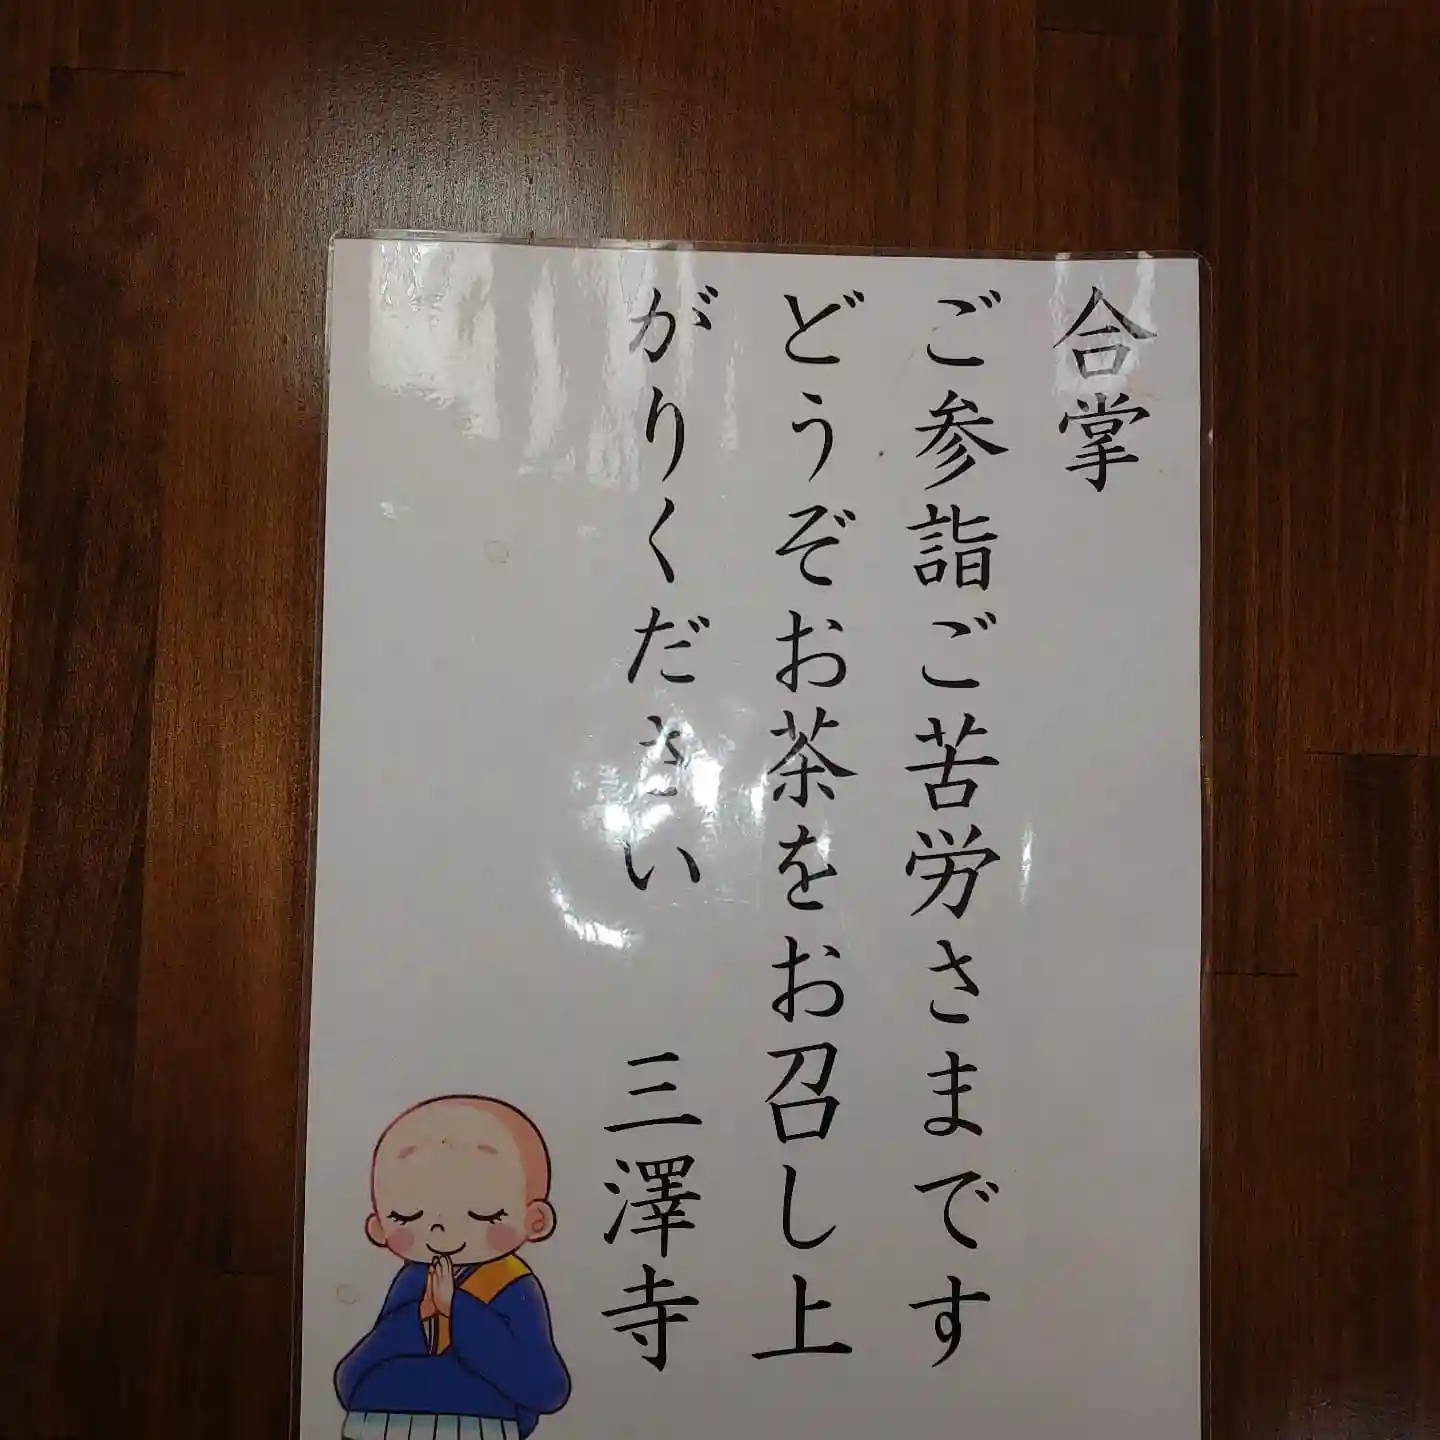 合掌
ご参詣ご苦労さまです
どうぞお茶をお召し上
がりください　三澤寺